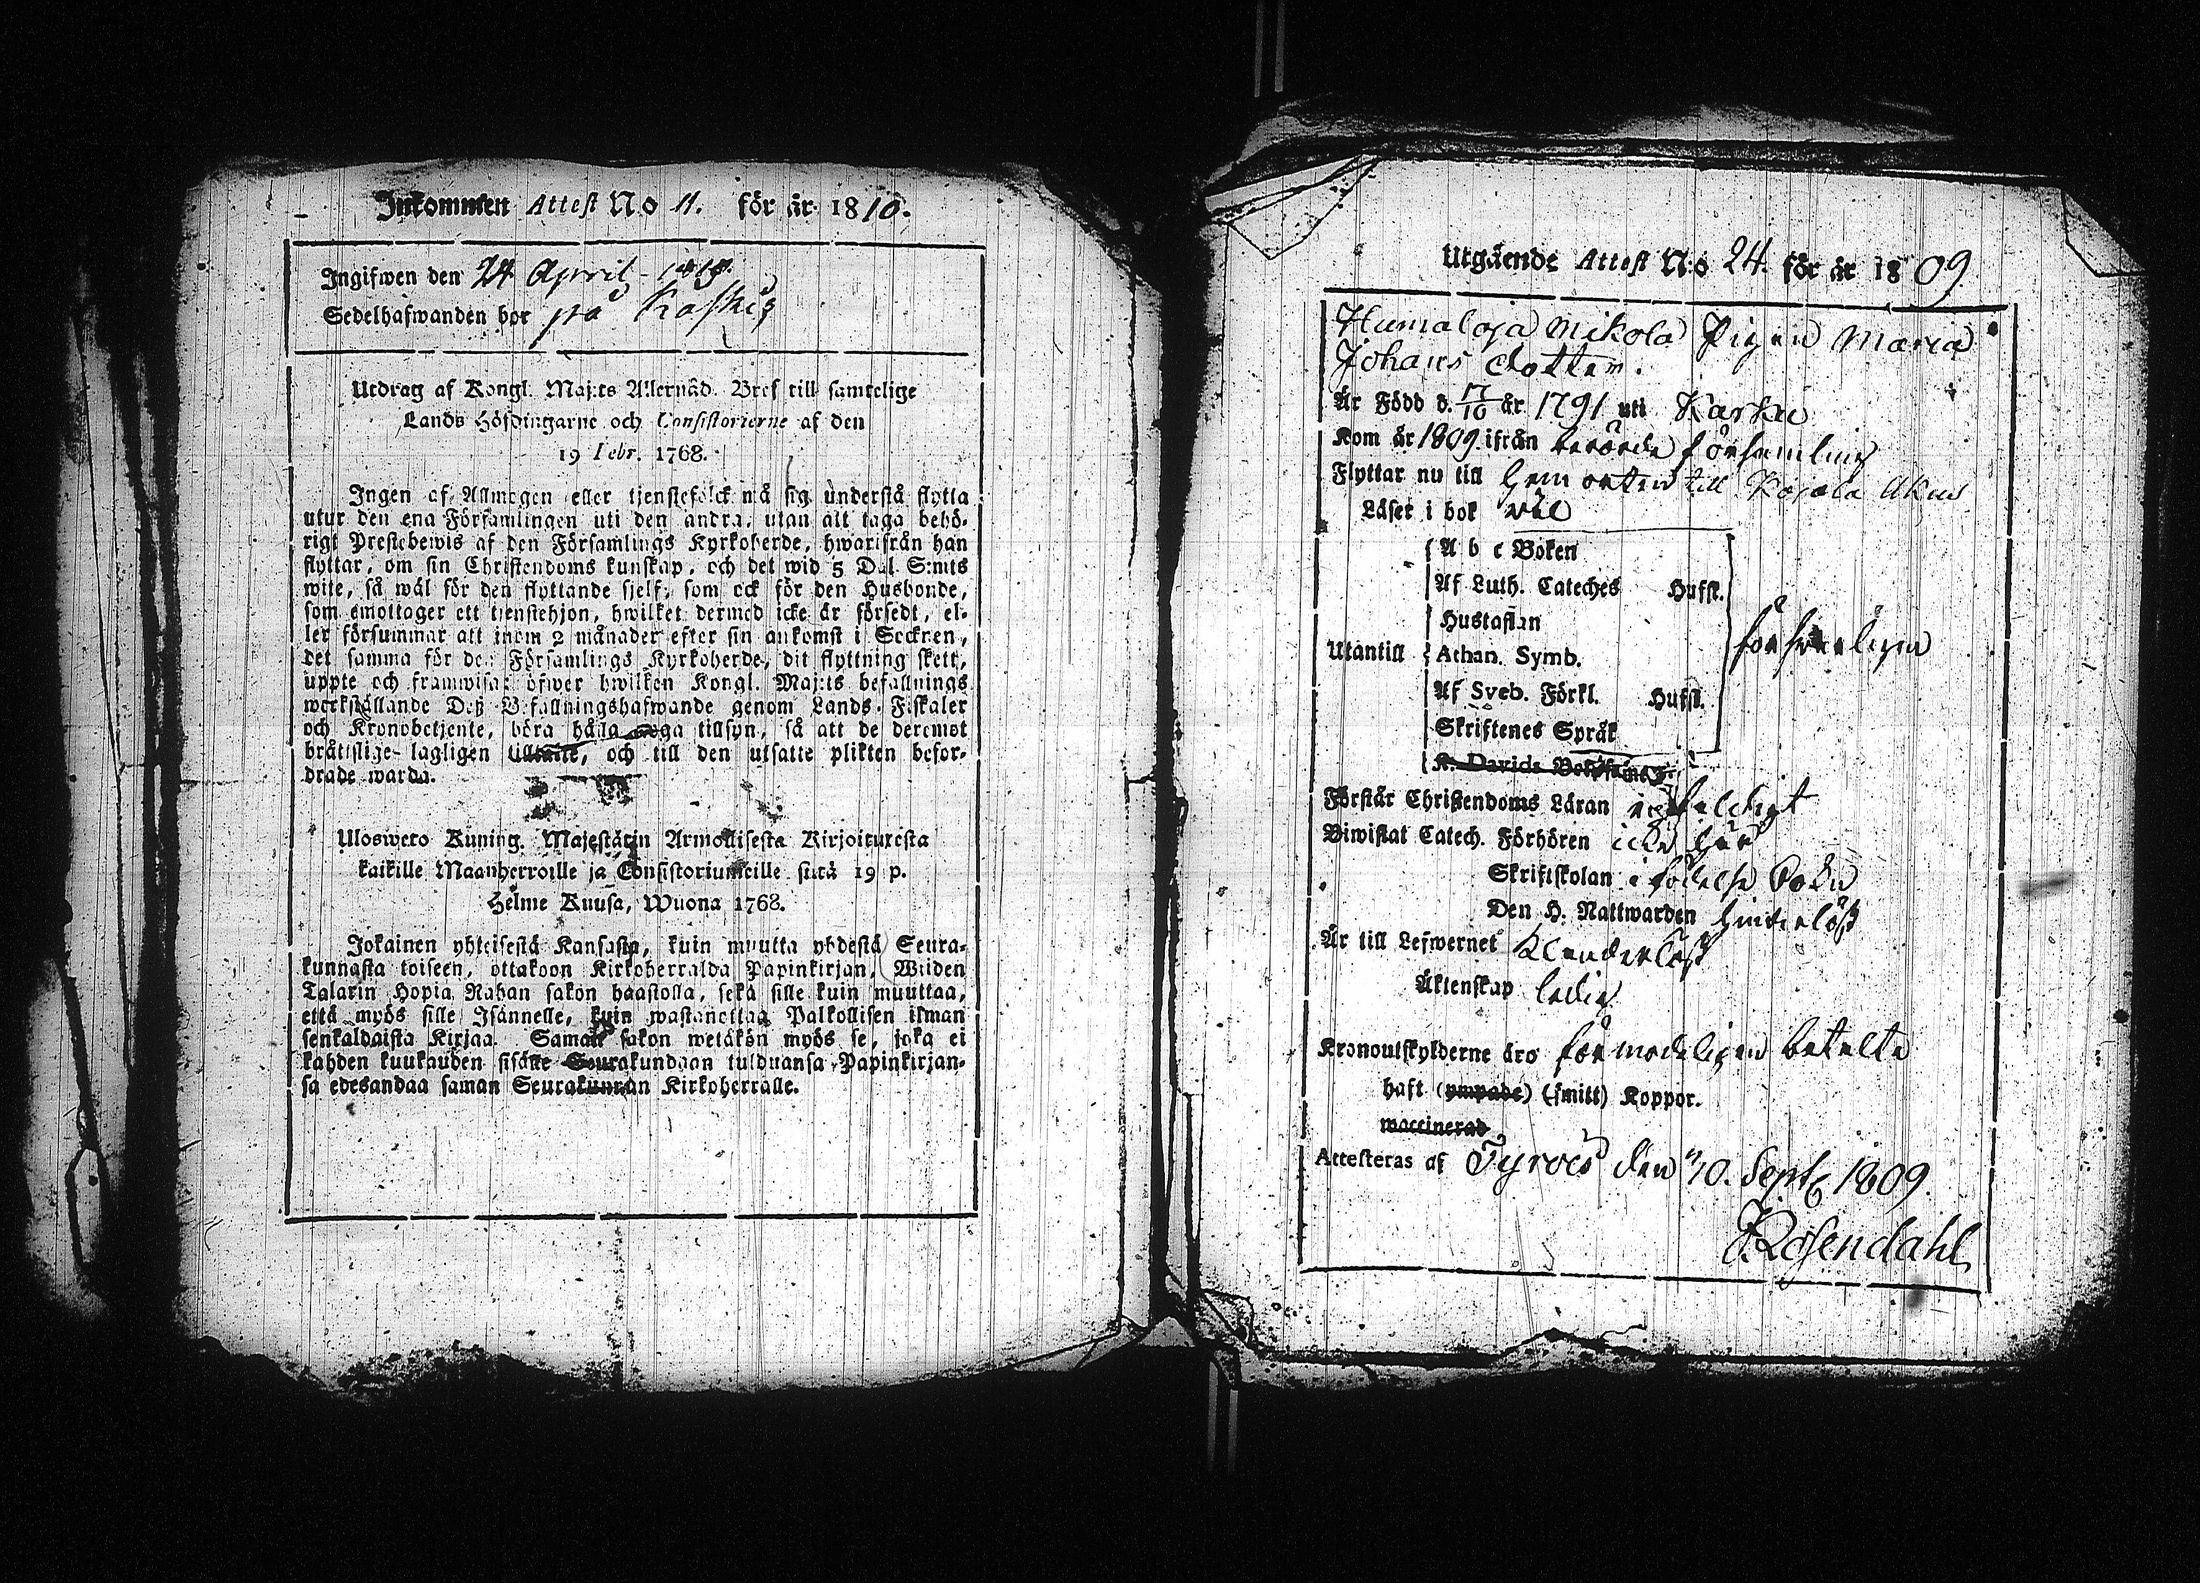 Inkommen Attest No 11. för år 1810.
Ingifwen den 24 April 1810.
Sedelhafwanden bor på Kaskis
Utdrag af Kongl. Maj:ts Allernåd. Bref till samtelige
Lands Höfdingarne och Consistorierne af den
19 Febr. 1768.
Ingen af Allmogen eller tjenstefolck må sig understå flytta
utur den ena Församlingen uti den andra, utan att taga behö-
rigt Prestebewis af den Församlings Kyrkoherde, hwarifrån han
flyttar, om sin Christendoms kunskap, och det wid 5 Dal. S:mts
wite, så wäl för den flyttande sjelf, som ock för den Husbonde,
som emottager ett tjenstehjon, hwilket dermed icke är försedt, el-
ler försummar att inom 2 månader efter sin ankomst i Socknen,
det samma för den Församlings Kyrkoherde, dit flyttning skett,
uppte och framwisa; öfwer hwilken Kongl. Maj:ts befallnings
werkställande Deß Befallningshafwande genom Lands-Fiskaler
och Kronobetjente, böra hålla noga tillsyn, så att de deremot
bråttslige lagligen tilltalte, och till den utsatte plikten befor-
drade warda.
Ulosweto Kuning. Majestätin Armollisesta Kirjoituxesta
kaikille Maanherroille ja Consistoriumeille siitä 19 p.
Helme Kuusa, Wuona 1768.
Jokainen yhteisestä Kansasta, kuin muutta yhdestä Seura-
kunnasta toiseen, ottakoon Kirkoherralda Papinkirjan, Wiiden
Talarin Hopia Rahan sakon haastolla, sekä sille kuin muuttaa,
että myös sille Isännelle, kuin wastanottaa Palkollisen ilman
senkaldaista Kirjaa. Saman sakon wetäkön myös se, joka ei
kahden kuukauden sisälle Seurakundaan tulduansa Papinkirjan-
sa edesandaa saman Seurakunnan Kirkoherralle.
Utgående Attest N:o 24. för år 1809.
Humaloja Mikola Pigan Maria
Johans dotter.
Är Född d. 17/10 år 1791 uti Karku
Kom år 1809 ifrån berörde församling
Flyttar nu till hem orten till Kojola Akus
Läser i bok väl
A b c Boken
Af Luth. Cateches Hufst.
Hustaflan
Utantill Athan. Symb. försvarligen
Af Sveb. Förkl. Hufst.
Skriftenes Språk
K. Davids Botpsalmer
Förstår Christendoms Läran enfaldigt
Biwistat Catech. Förhören icke här
Skriftskolan i födelse Sokn
Den H. Nattwarden hinderlöst
Är till Lefwernet klanderlöst
Äktenskap ledig
Kronoutskylderne äro förmodeligen betalte
haft (ympade) (smitt) Koppor.
waccinerad
Attesteras af Tyrwis den 10. Sept. 1809.
J. Rosendahl